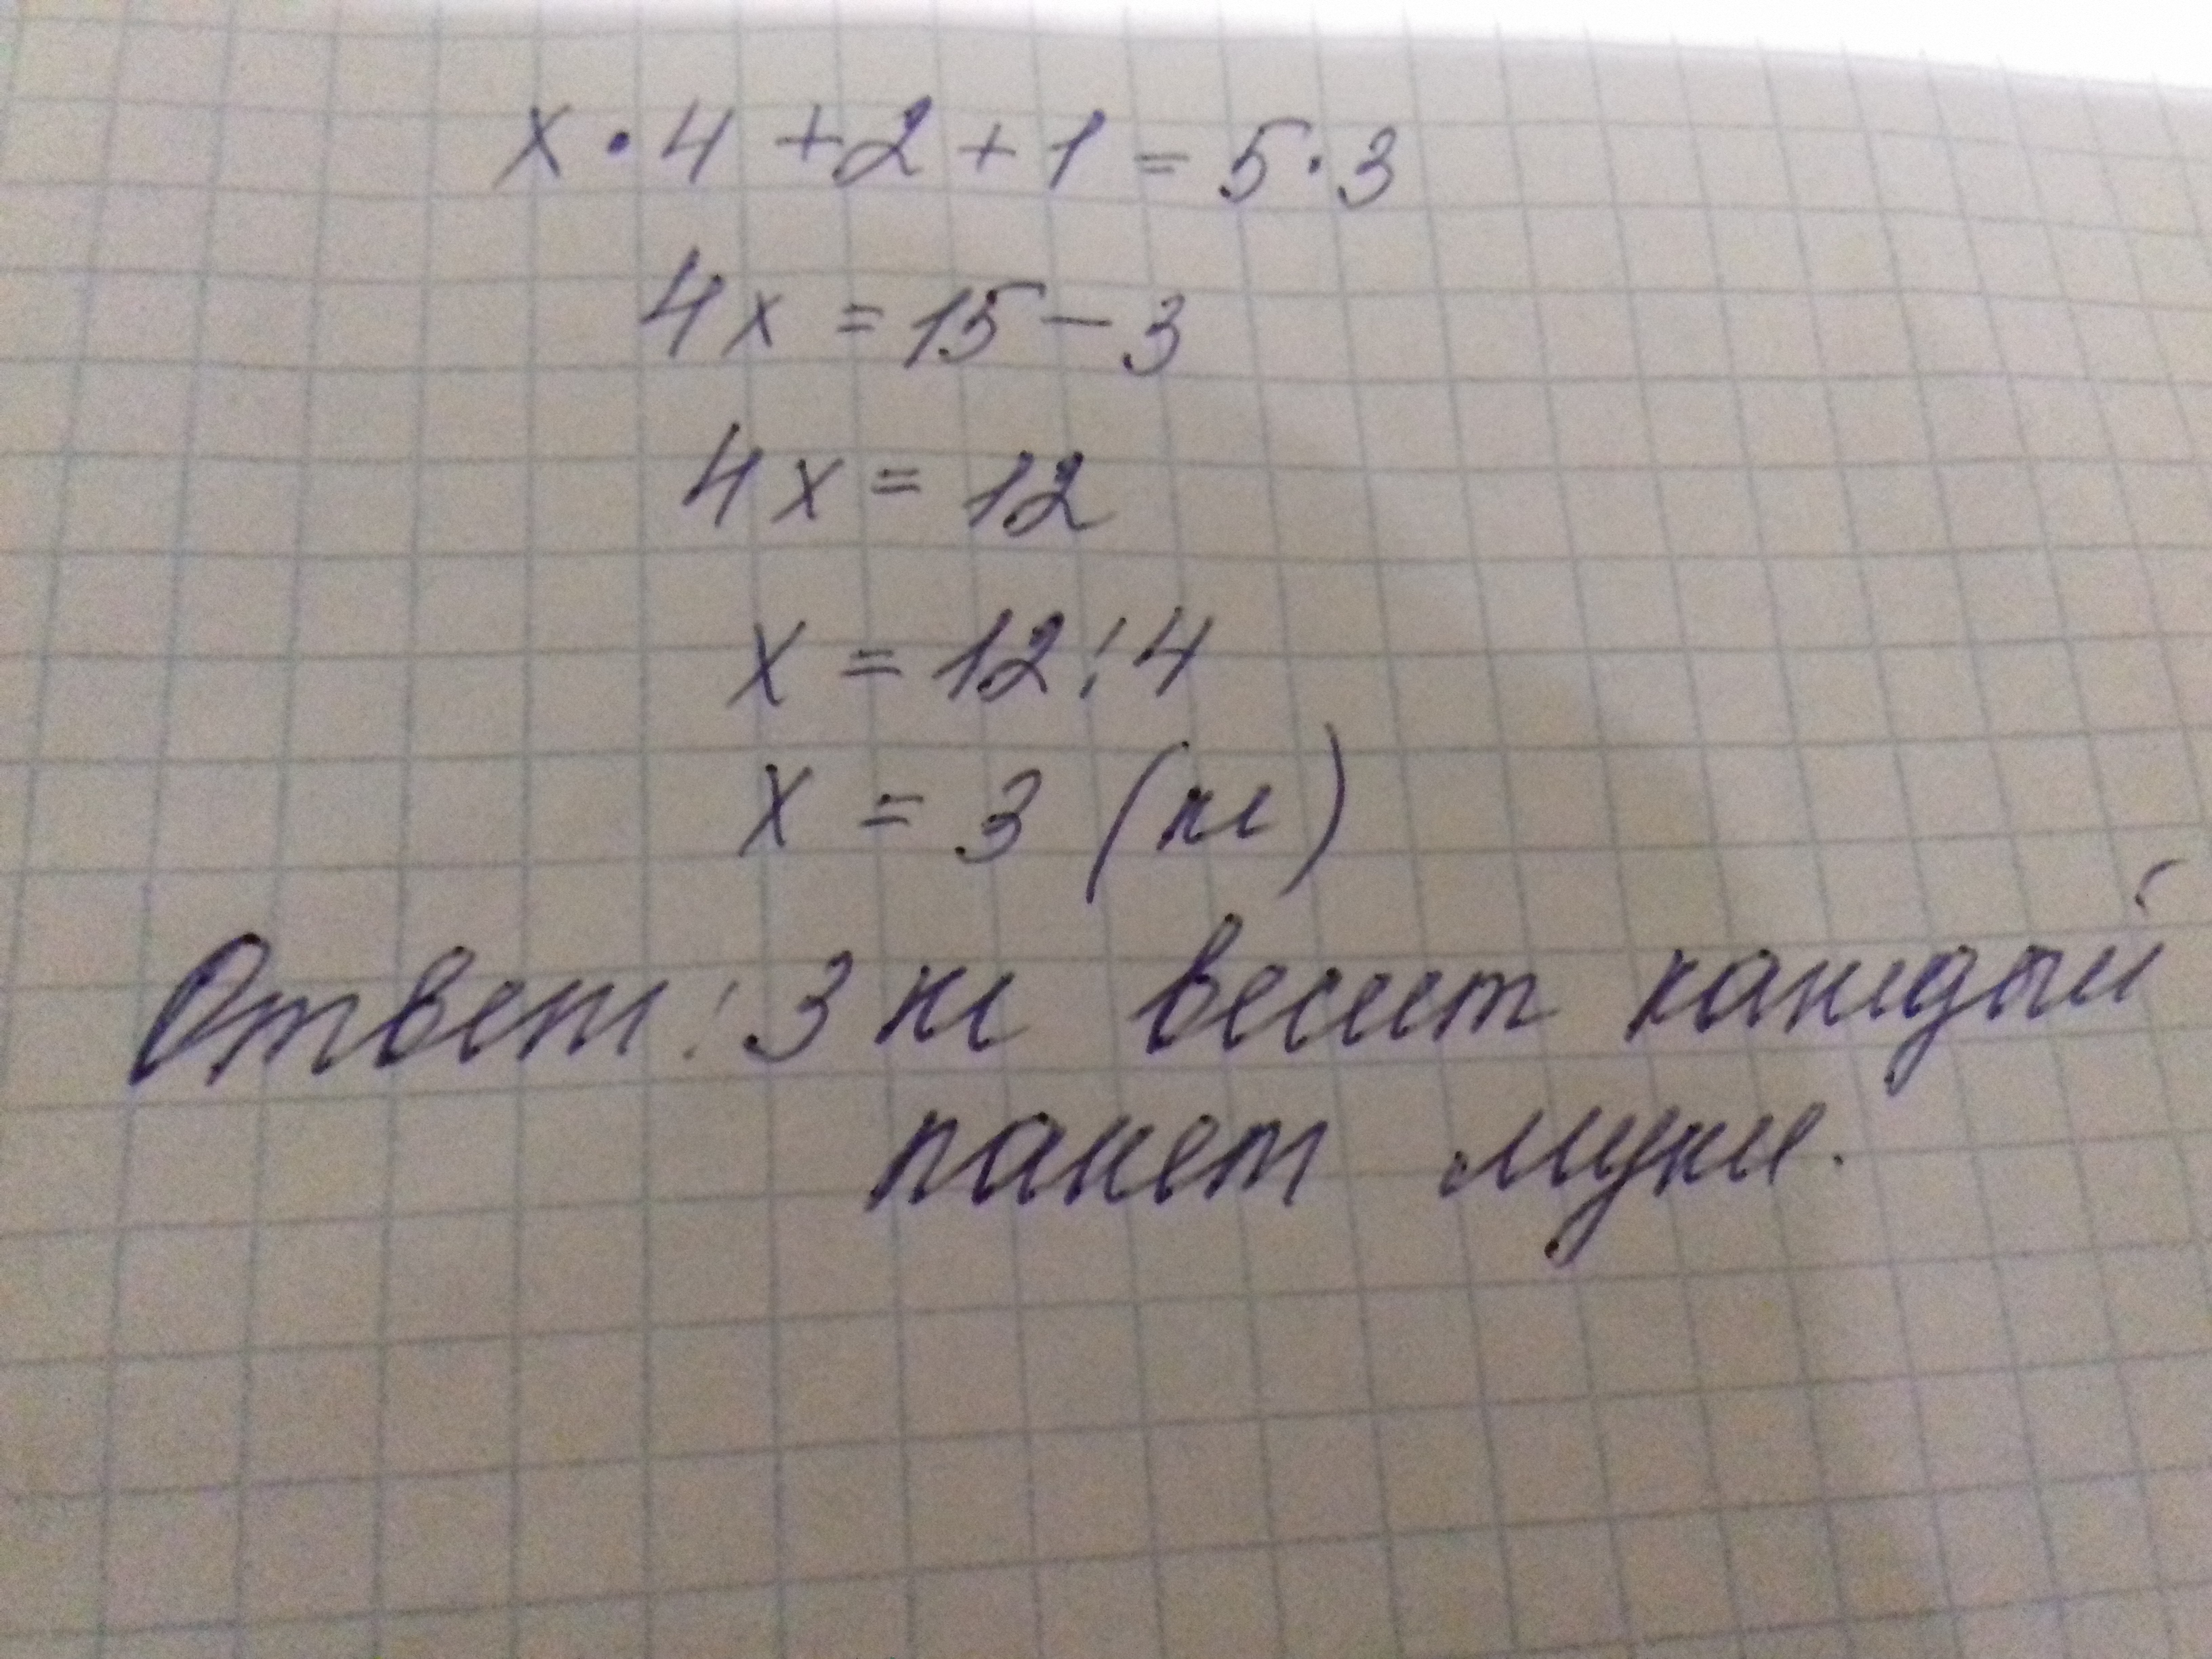 x · 4 + 2 + 1 = 5 · 3
4x = 15 - 3
4x = 12
x = 12 : 4
x = 3 (кг)
Ответ: 3 кг весит каждый
пакет муки.